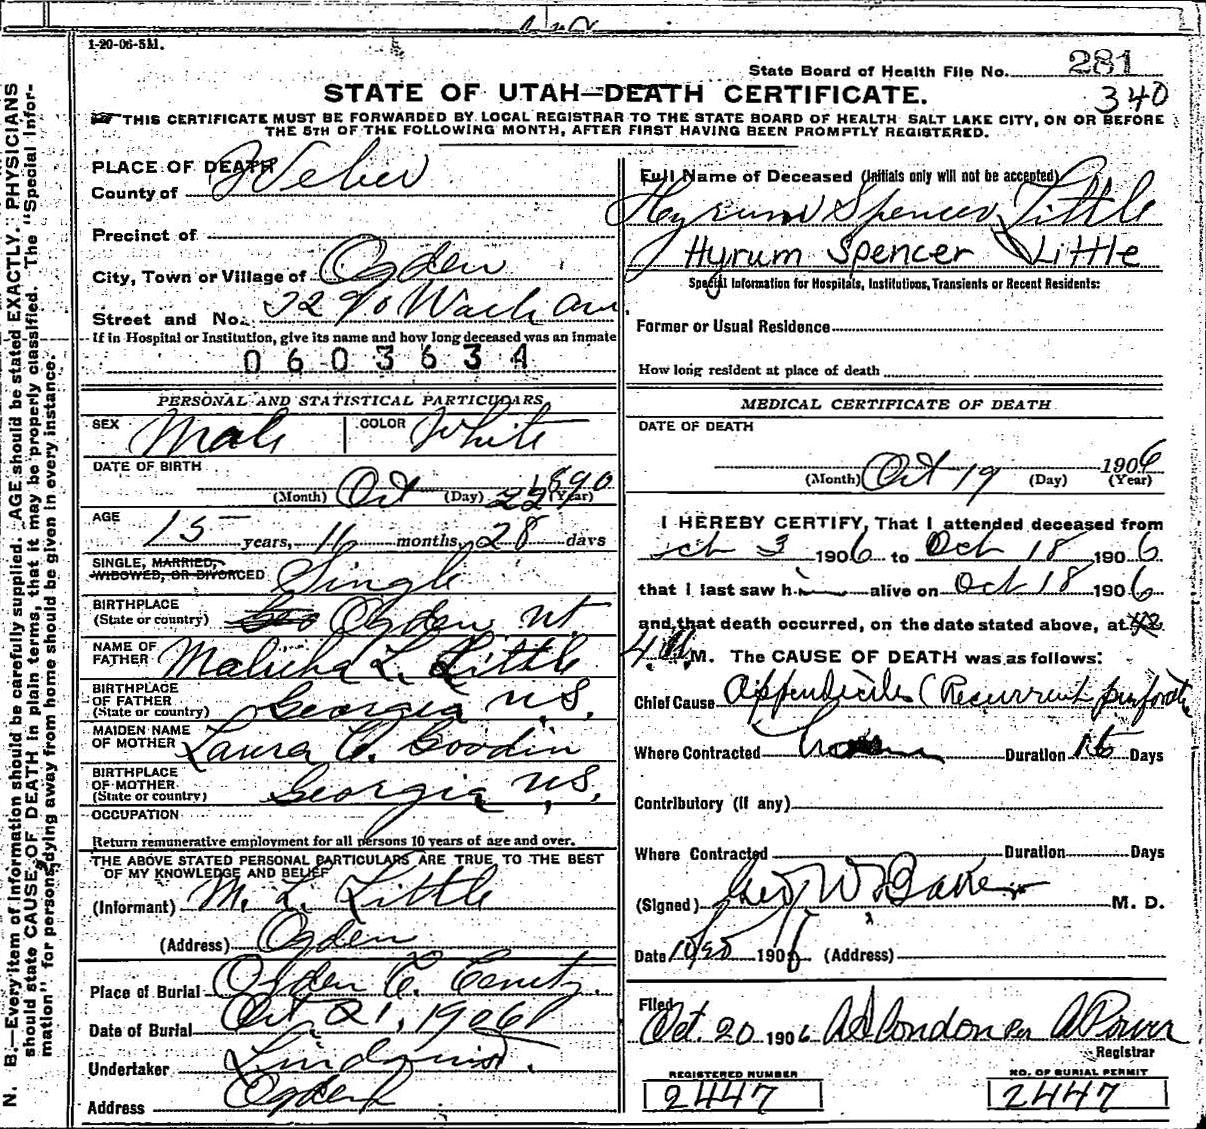 1-20-06-5M.
State Board of Health File No. 281
340
STATE OF UTAH—DEATH CERTIFICATE.
THIS CERTIFICATE MUST BE FORWARDED BY LOCAL REGISTRAR TO THE STATE BOARD OF HEALTH SALT LAKE CITY, ON OR BEFORE
THE 5TH OF THE FOLLOWING MONTH, AFTER FIRST HAVING BEEN PROMPTLY REGISTERED.
N. B.—Every item of information should be carefully supplied. AGE should be stated EXACTLY. PHYSICIANS
should state CAUSE OF DEATH in plain terms, that it may be properly classified. The "Special Infor-
mation" for persons dying away from home should be given in every instance.
PLACE OF DEATH
County of Weber
Precinct of
City, Town or Village of Ogden
Street and No. Wash av
If in Hospital or Institution, give its name and how long deceased was an inmate
0603634
PERSONAL AND STATISTICAL PARTICULARS
SEX Male COLOR White
DATE OF BIRTH
(Month) Oct (Day) 22 1890 (Year)
AGE
15 years, 11 months, 28 days
SINGLE, MARRIED,
WIDOWED, OR DIVORCED Single
BIRTHPLACE
(State or country) Geo Ogden ut
NAME OF
FATHER L. Little
BIRTHPLACE
OF FATHER
(State or country) Georgia U.S.
MAIDEN NAME
OF MOTHER Laura A. Goodin
BIRTHPLACE
OF MOTHER
(State or country) Georgia U.S.
OCCUPATION
Return remunerative employment for all persons 10 years of age and over.
THE ABOVE STATED PERSONAL PARTICULARS ARE TRUE TO THE BEST
OF MY KNOWLEDGE AND BELIEF
(Informant) M. L. Little
(Address) Ogden
Place of Burial Ogden C. Cemty.
Date of Burial Oct 21, 1906
Undertaker Lindquist.
Address Ogden
Full Name of Deceased (Initials only will not be accepted)
Hyrum Spencer Little
Hyrum Spencer Little
Special Information for Hospitals, Institutions, Transients or Recent Residents:
Former or Usual Residence
How long resident at place of death
MEDICAL CERTIFICATE OF DEATH
DATE OF DEATH
(Month) Oct 19 (Day) 1906 (Year)
I HEREBY CERTIFY, That I attended deceased from
3 1906 to Oct 18 1906
that I last saw him alive on Oct 18 1906
and that death occurred, on the date stated above, at
4 A.M. The CAUSE OF DEATH was as follows:
Chief Cause Appendicitis (Recurrent
Where Contracted Duration 15 Days
Contributory (if any)
Where Contracted Duration Days
(Signed) Geo W Baker M. D.
Date 1906 (Address)
Filed
Oct. 20 1906 London Per A Power
Registrar
REGISTERED NUMBER
2447
NO. OF BURIAL PERMIT
2447